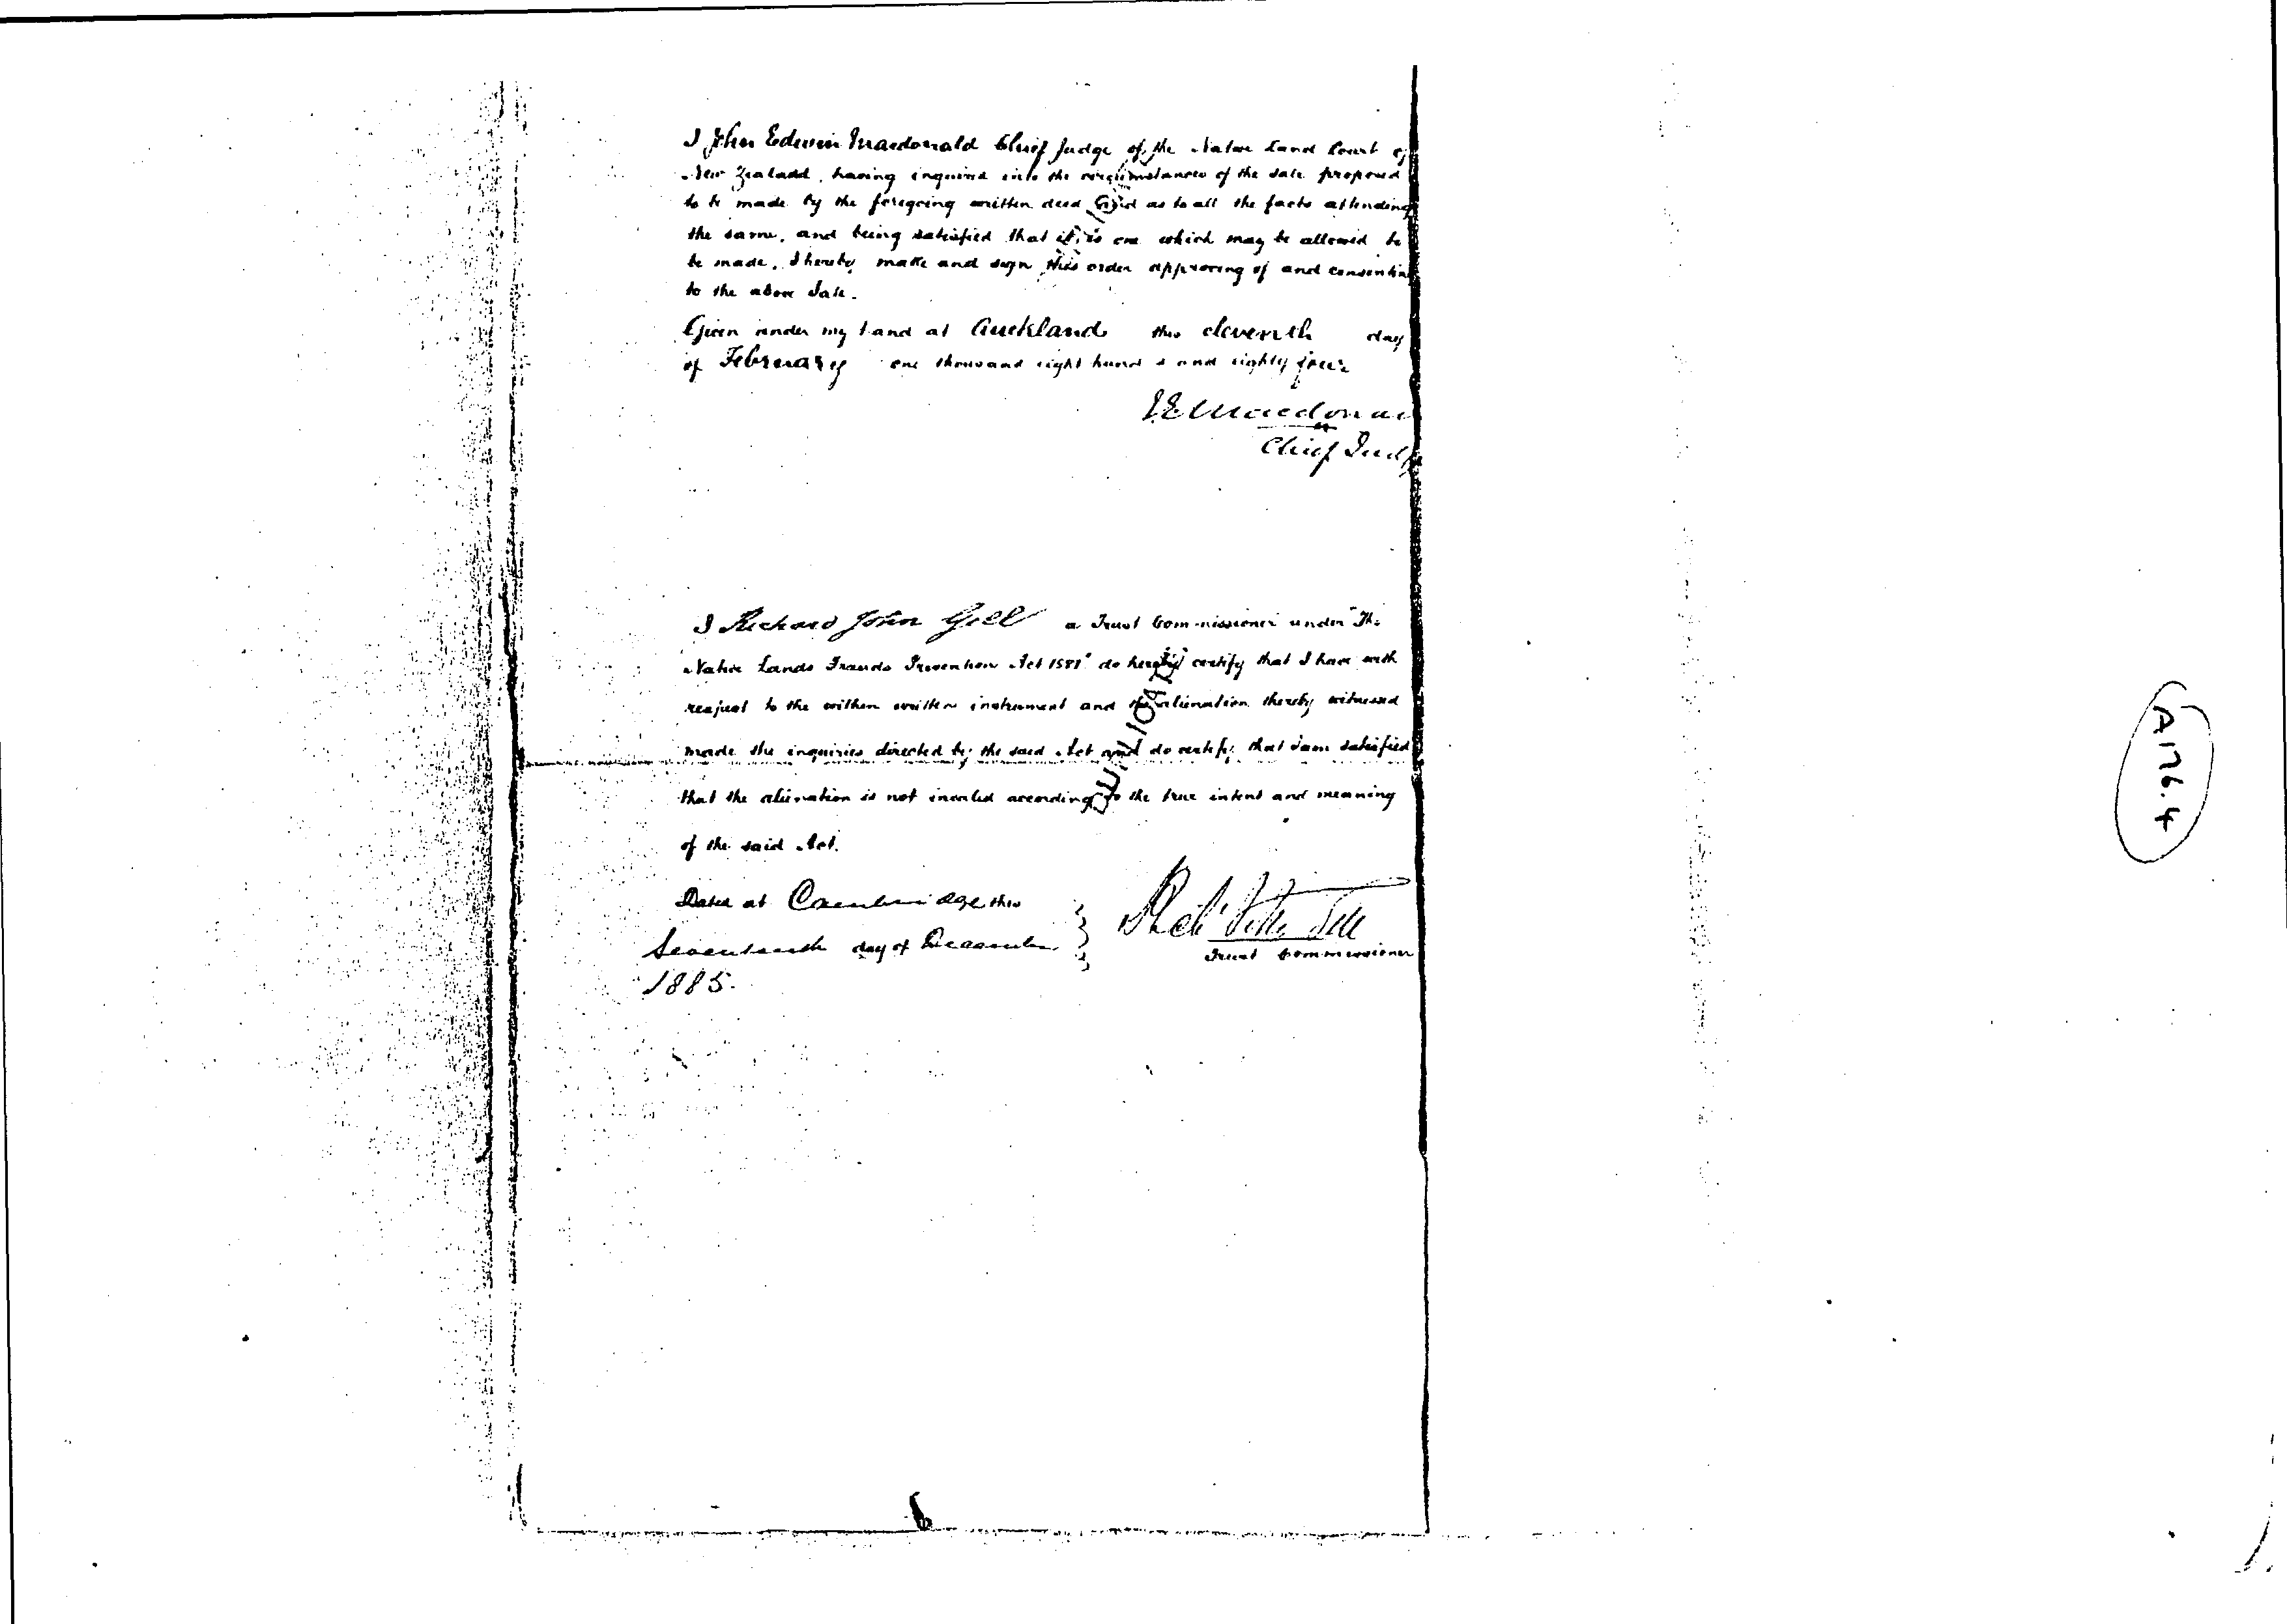 I John Edwin Macdonald Chief Judge of the Native Land Court of
New Zealand, having inquired into the circumstances of the sale proposed
to be made by the foregoing written deed and as to all the facts attending
the same, and being satisfied that it is one which may be allowed to
be made, I hereby make and sign this order approving of and consenting
to the above sale.
Given under my hand at Auckland this eleventh day
of February one thousand eight hund d and eighty four
J.E. Macdonal
Chief Judg
I Richard John Gill a Trust Commissioner under "The
Native Lands Frauds Prevention Act 1881" do hereby certify that I have with
respect to the within written instrument and the alienation thereby witnessed
made the inquiries directed by the said Act and do certify that I am satisfied
that the alienation is not invalid according to the true intent and meaning
of the said Act.
Dated at Cambridge this
Seventeenth day of December
1885.
Richd John Gill
Trust Commissioner
A176.4